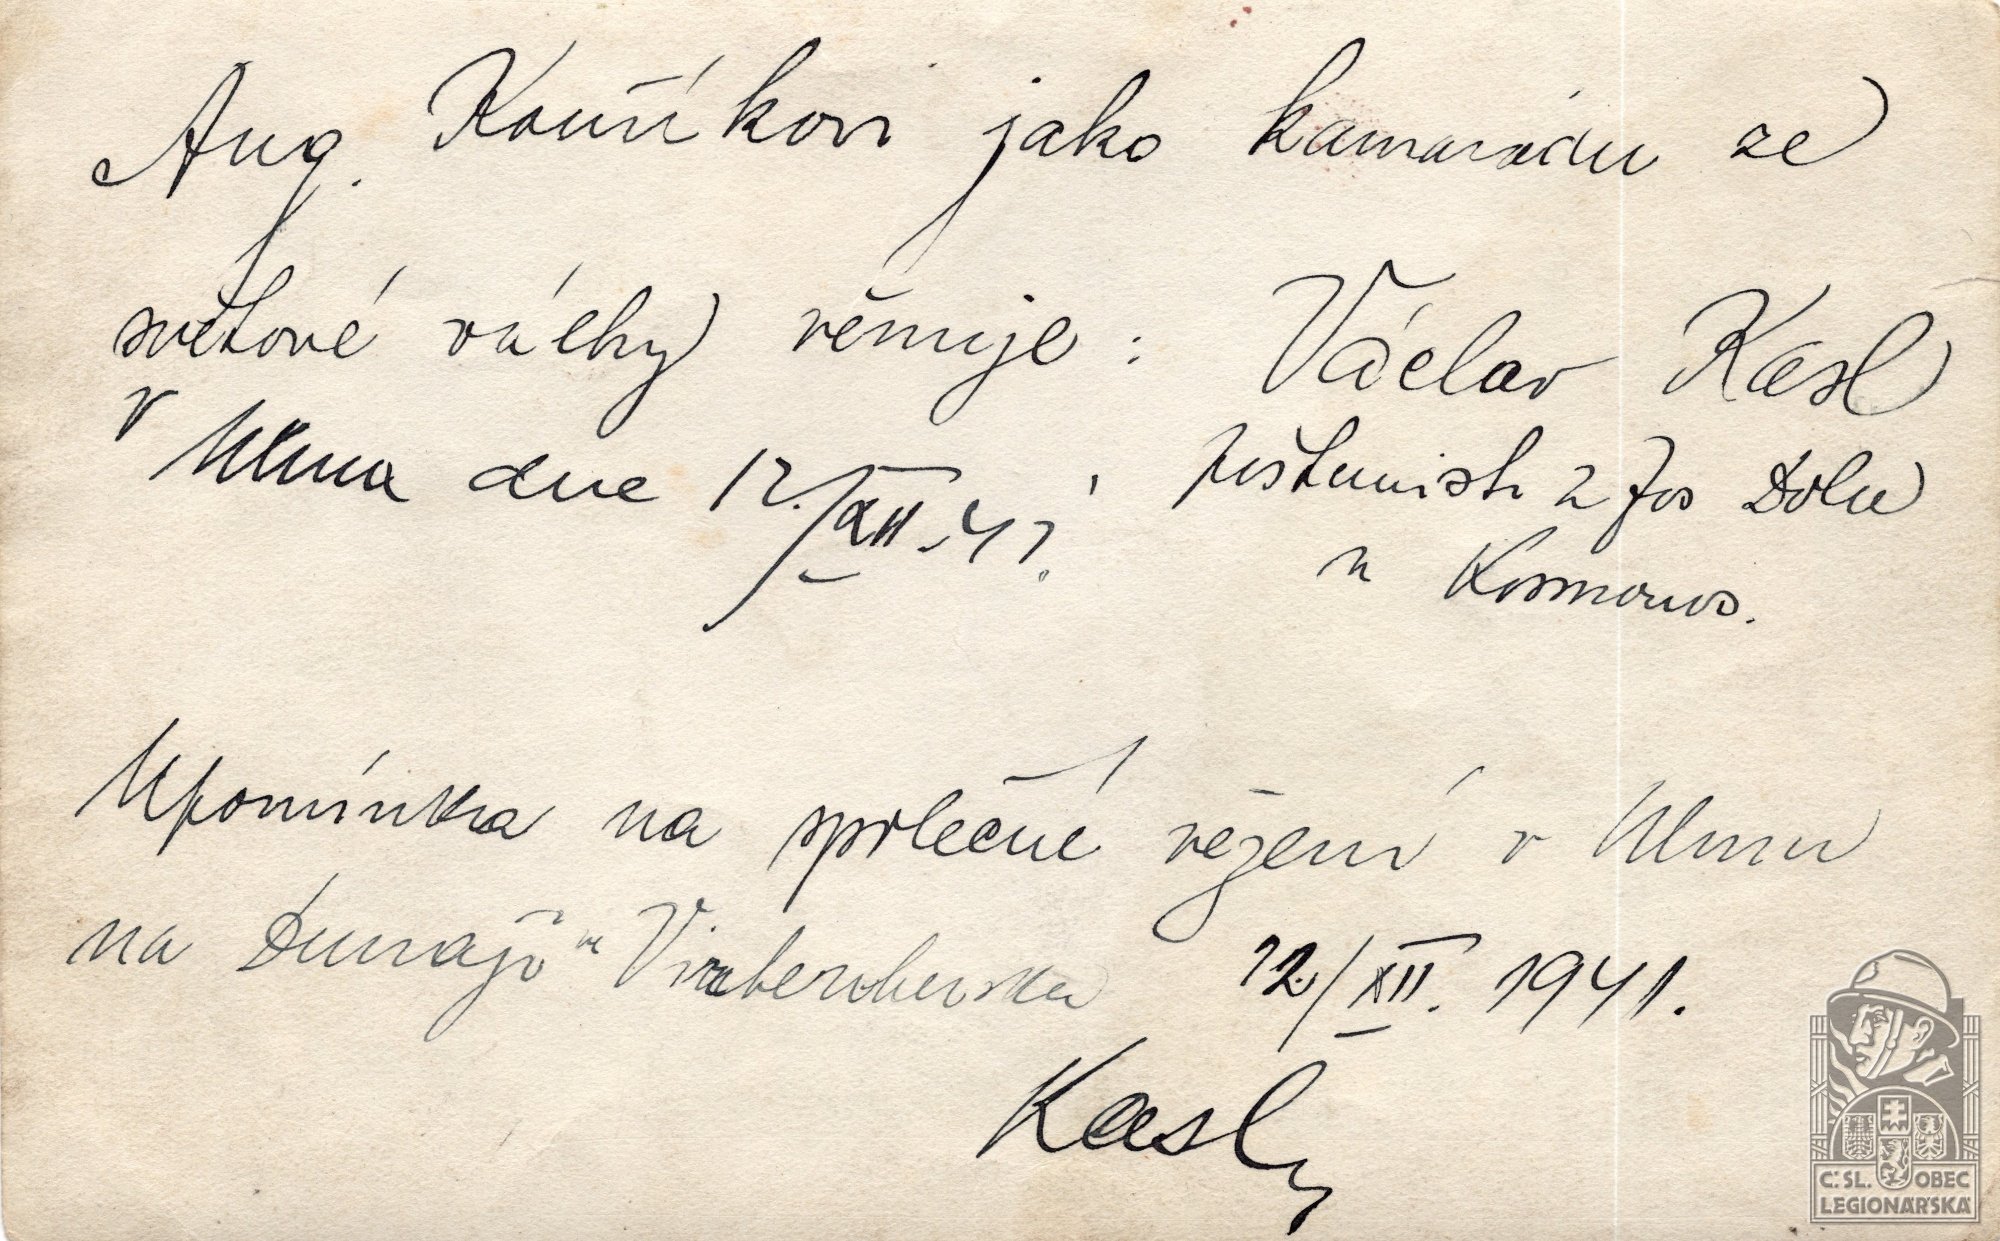 Aug. Kouříkovi jako kamarádu ze
světové války věnuje: Václav Kasl
V Ulmu dne 12./XII. 41. poštmistr z Jos Dolu
u Kosmonos.
Upomínka na společné vězení v Ulmu
na Dunaji ve Virtembersku 12./XII. 1941.
Kasl
Č.SL. OBEC
LEGIONÁŘSKÁ